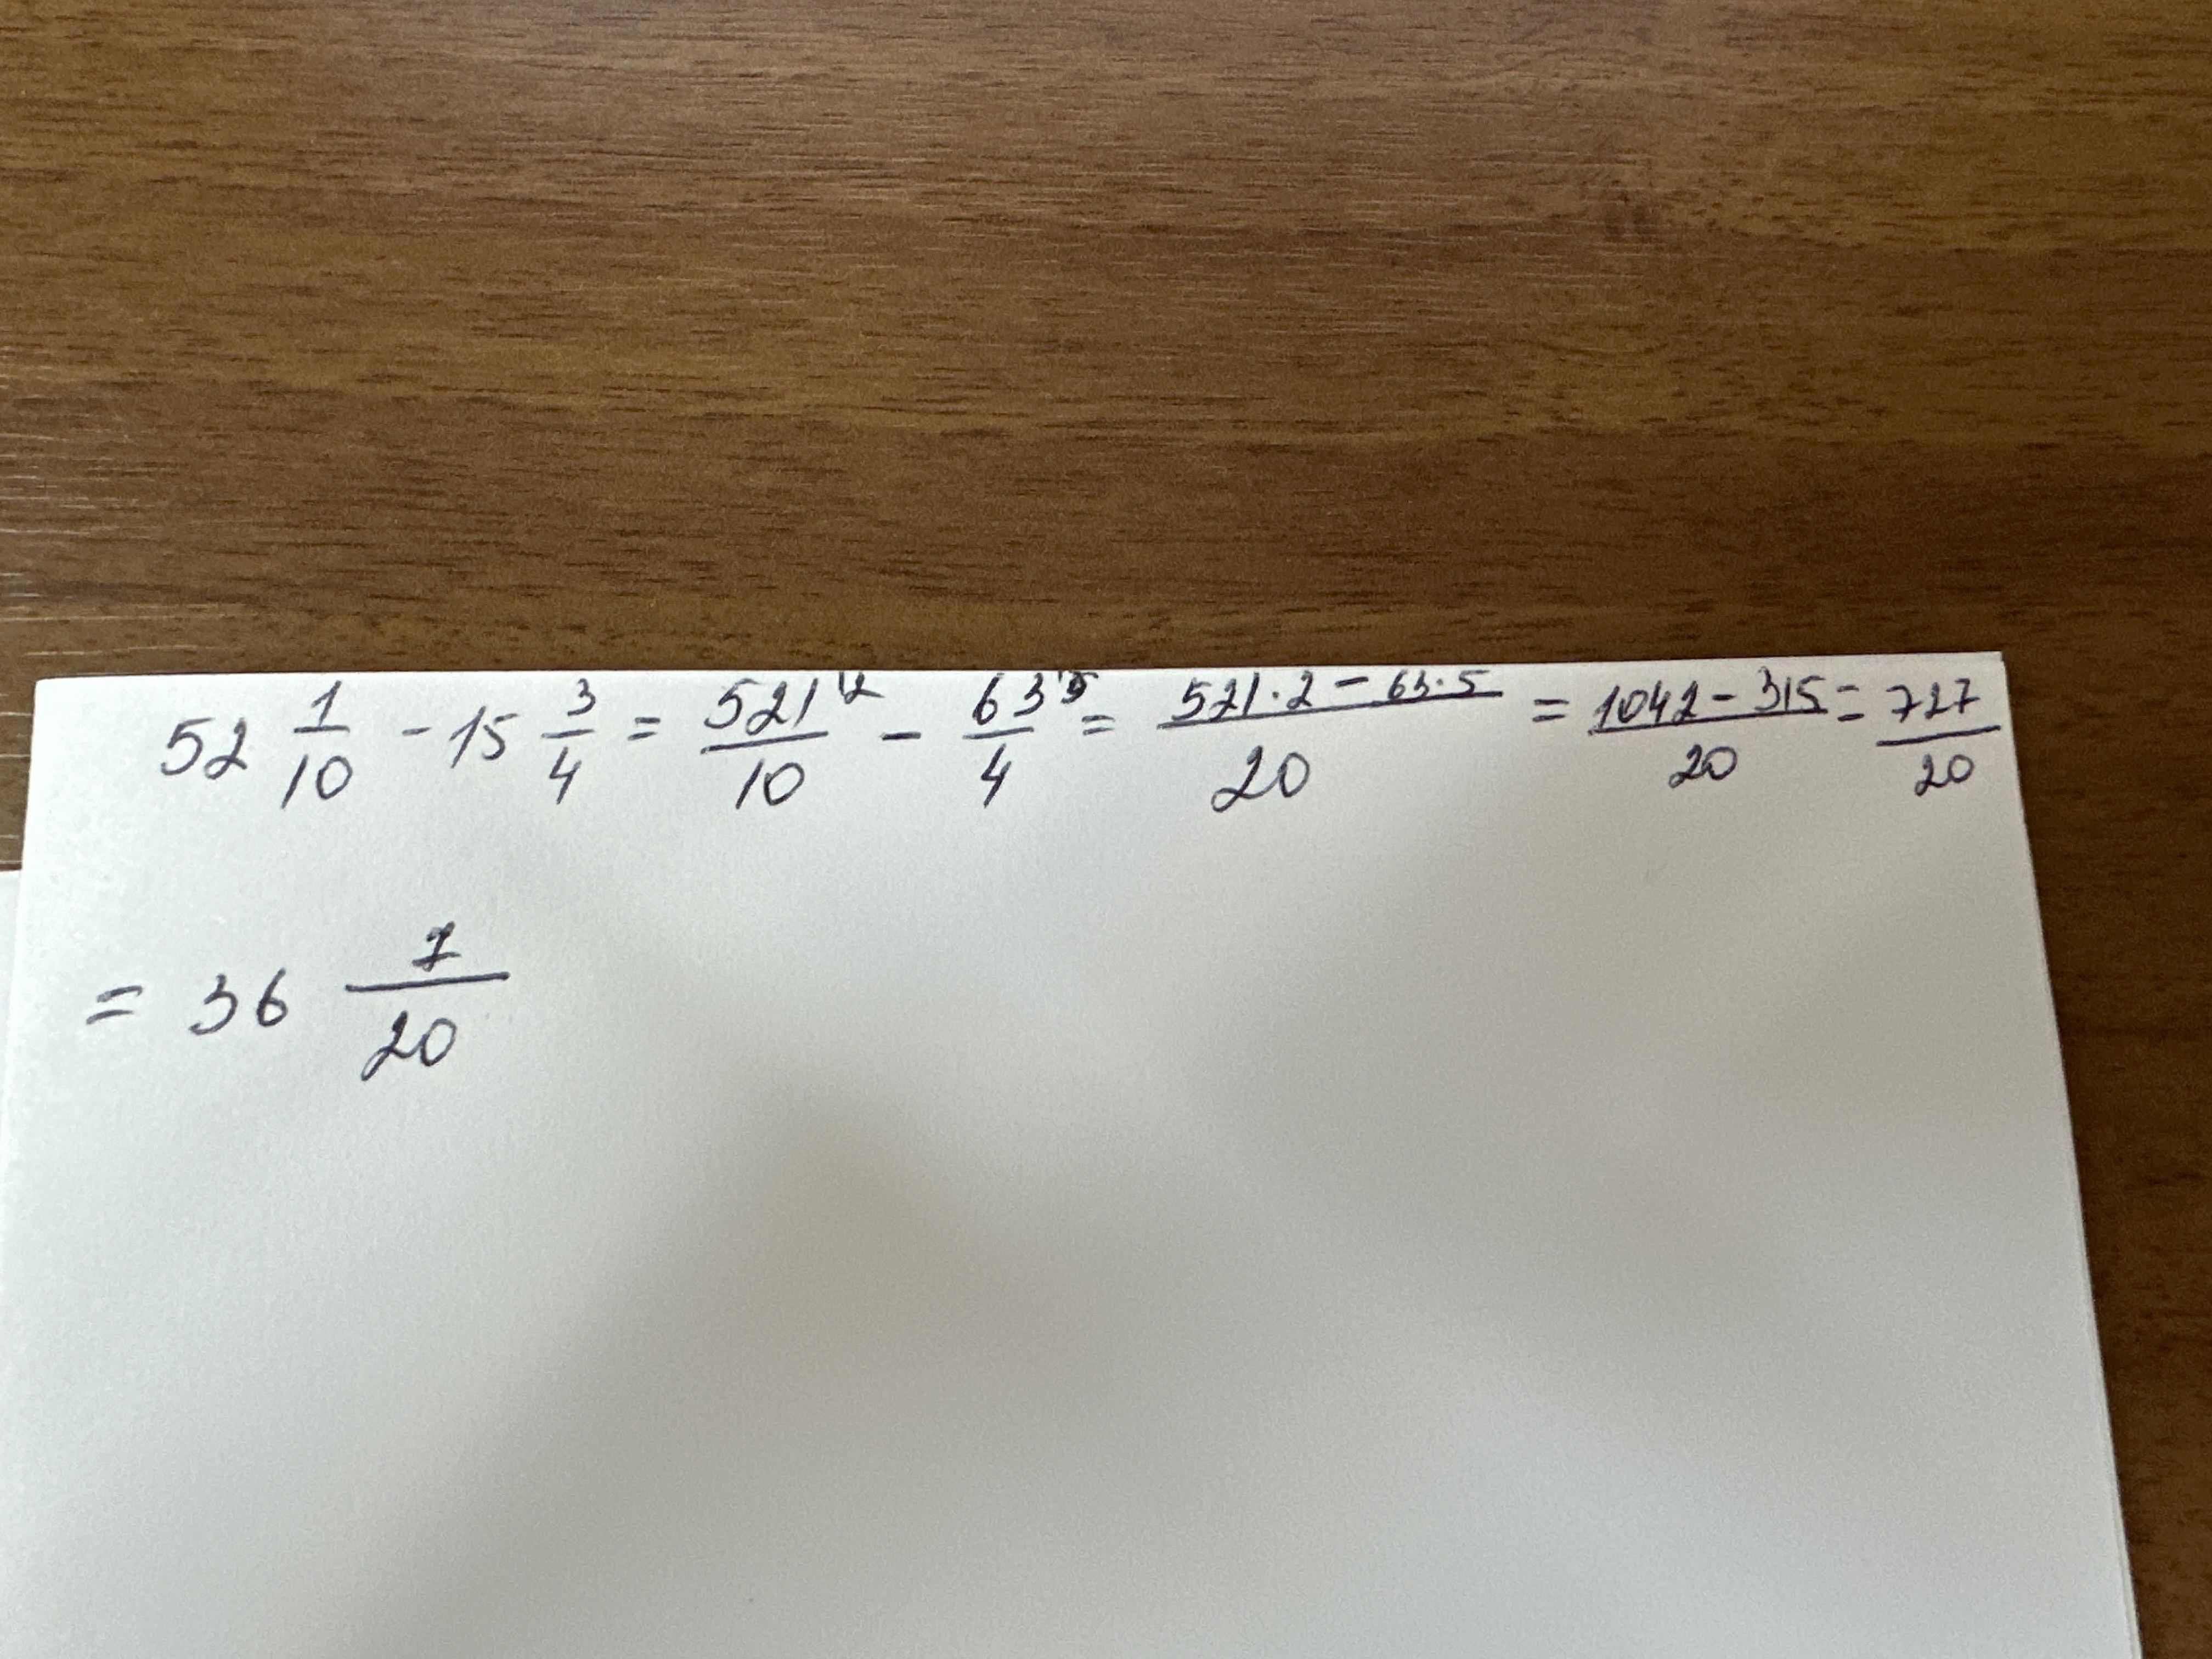 52 1/10 - 15 3/4 = 521\2/10 - 63\5/4 = 521·2 - 63·5/20 = 1042 - 315/20 = 727/20
= 36 7/20